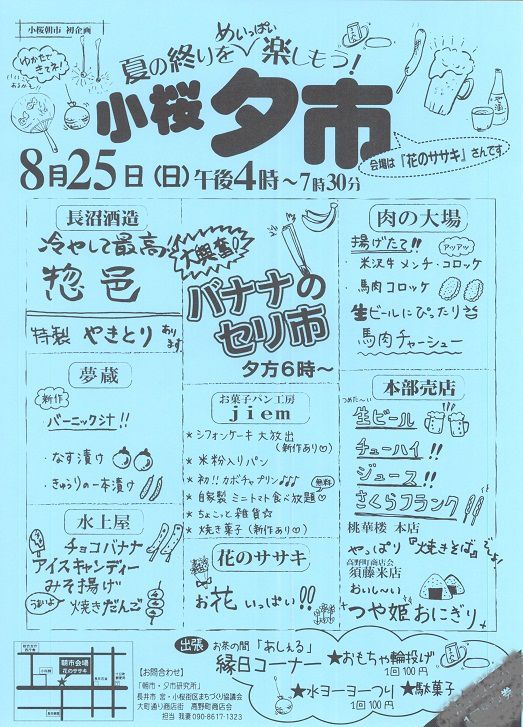 小桜朝市 初企画
ゆかたで
きてネ!
夏の終りを めいっぱい 楽しもう!
小桜 夕市
会場は『花のササキ』さんです
8月25日(日)午後4時~7時30分
長沼酒造
冷やして最高!
惣邑
特製 やきとり あります
夢蔵
新作
バーニック汁!!
・なす漬け
・きゅうりの一本漬け
水上屋
チョコバナナ
アイスキャンディー
みそ揚げ
うまいよ 焼きだんご
大興奮!
バナナの
セリ市
夕方6時~
お菓子パン工房
jiem
* シフォンケーキ 大放出
(新作あり♡)
* 米粉入りパン
* 初!! カボチャプリン♪♪♪
* 自家製 ミニトマト食べ放題♡ 無料
* ちょこっと 雑貨☆
* 焼き菓子(新作あり♡)
花のササキ
お花 いっぱい!!
肉の大場
揚げたて!! アツアツ
・米沢牛メンチ・コロッケ
・馬肉コロッケ
生ビールにぴったり
馬肉チャーシュー
本部売店
つめた~い
生ビール
チューハイ!!
ジュース!!
さくらフランク
桃華楼 本店
やっぱり『焼きそば』でしょ!
高野町商店会
須藤米店
おいし~い
つや姫おにぎり
出張 お茶の間「あしぇる」
縁日コーナー
★おもちゃ輪投げ
1回100円
★水ヨーヨーつり
1回100円
★駄菓子
朝市会場
花のササキ
【お問合わせ】
「朝市・夕市研究所」
長井市 宮・小桜街区まちづくり協議会
大町通り商店街 高野町商店会
担当 我妻 090-8617-1323